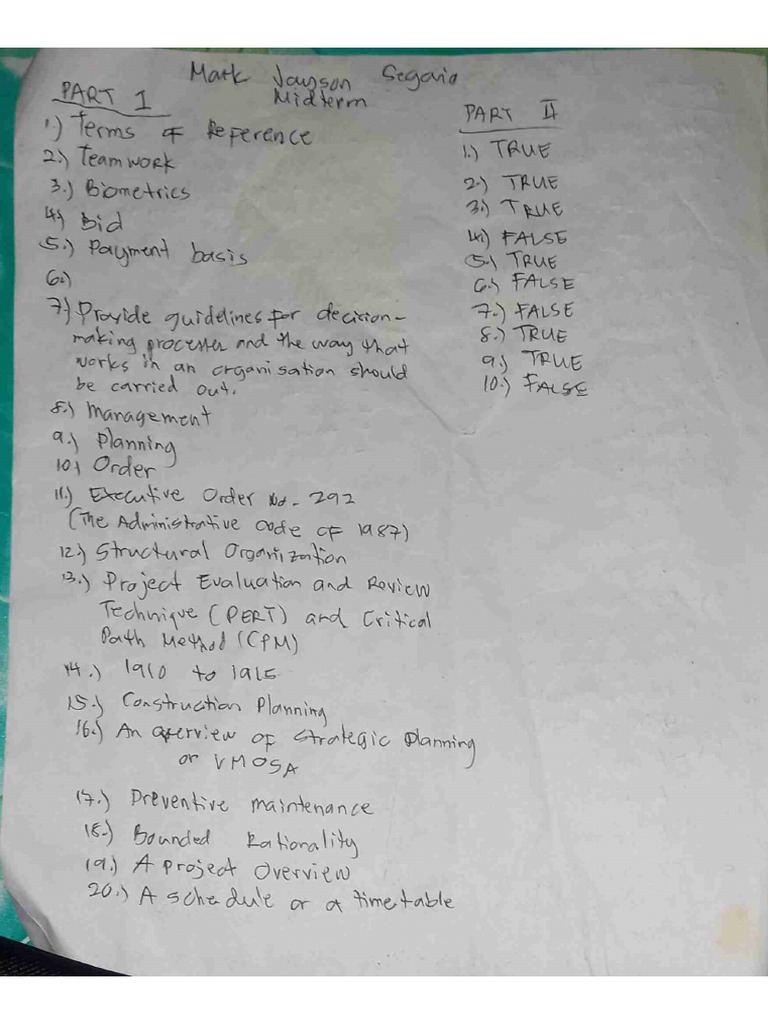 Mark Jayson Segovia
Midterm
PART 1
1.) Terms of Reference
2.) Teamwork
3.) Biometrics
4.) Bid
5.) Payment basis
6.)
7.) Provide guidelines for decision-
making processes and the way that
works in an organisation should
be carried out.
8.) Management
9.) Planning
10.) Order
11.) Executive Order No. 292
(The Administrative Code of 1987)
12.) Structural Organization
13.) Project Evaluation and Review
Technique (PERT) and Critical
Path Method (CPM)
14.) 1910 to 1915
15.) Construction Planning
16.) An overview of strategic planning
or VMOSA
17.) Preventive maintenance
18.) Bounded Rationality
19.) A project Overview
20.) A schedule or a timetable
PART II
1.) TRUE
2.) TRUE
3.) TRUE
4.) FALSE
5.) TRUE
6.) FALSE
7.) FALSE
8.) TRUE
9.) TRUE
10.) FALSE